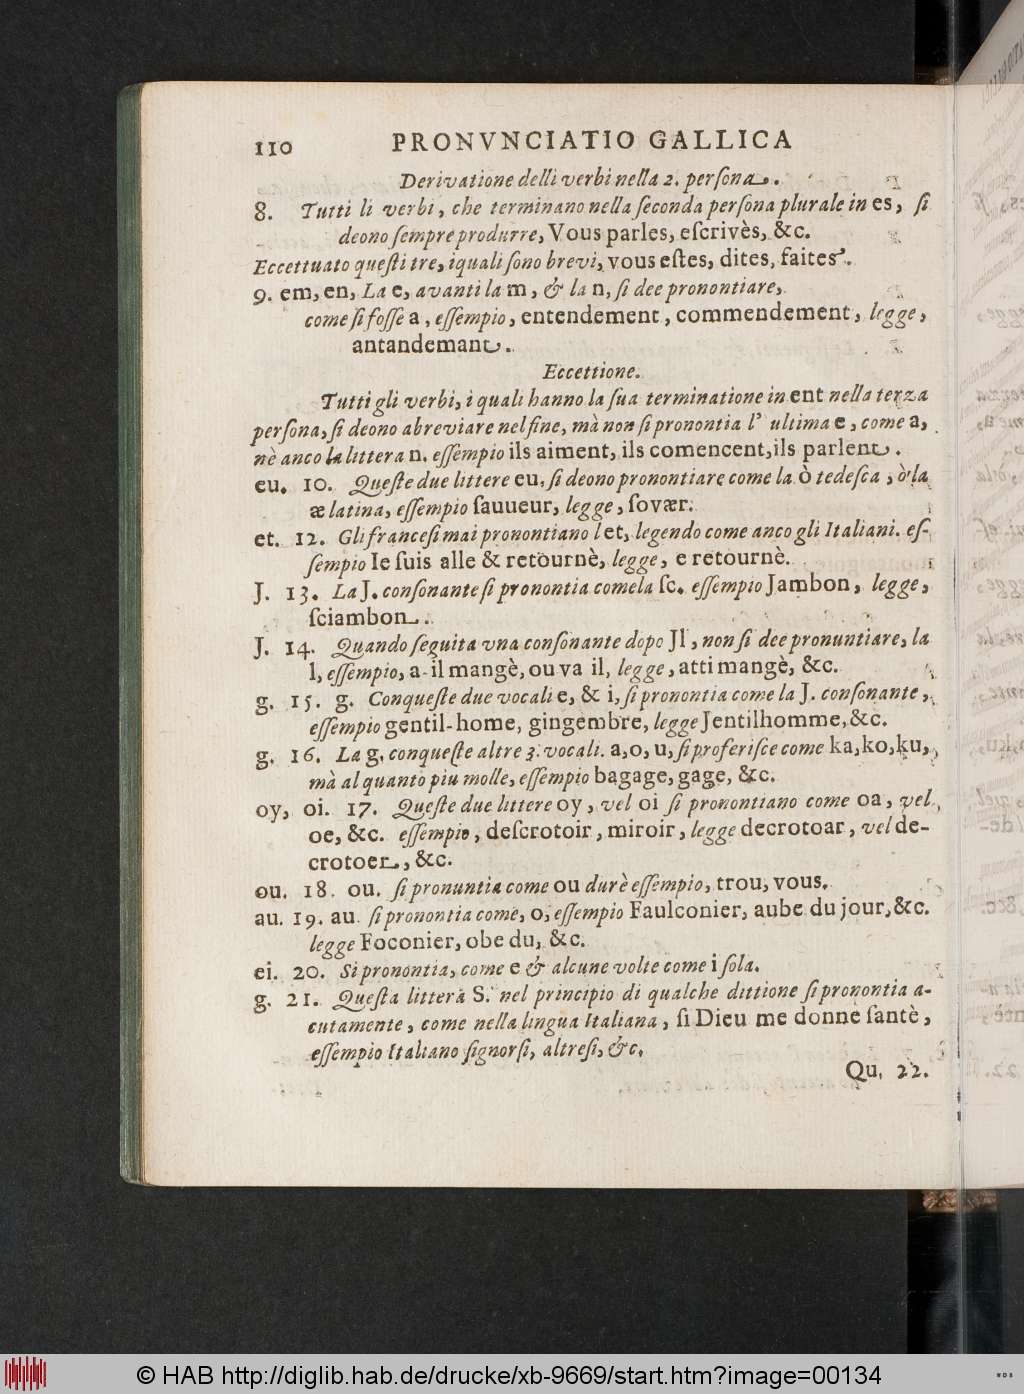 110 PRONVNCIATIO GALLICA
Derivatione delli verbi nella 2. perſona.
8. Tutti li verbi, che terminano nella ſeconda perſona plurale in es, ſi
deono ſempre produrre, Vous parles, eſcrivès, &c.
Eccettuato queſti tre, iquali ſono brevi, vous eſtes, dites, faites.
9. em, en, La e, avanti la m, & la n, ſi dee pronontiare,
come ſi foſſe a, eſſempio, entendement, commendement, legge,
antandemant.
Eccettione.
Tutti gli verbi, i quali hanno la ſua terminatione in ent nella terza
perſona, ſi deono abreviare nel fine, mà non ſi pronontia l' ultima e, come a,
nè anco la littera n. eſſempio ils aiment, ils comencent, ils parlent.
eu. 10. Queſte due littere eu, ſi deono pronontiare come la ò tedeſca, ò la
æ latina, eſſempio ſauueur, legge, ſovær.
et. 12. Gli franceſi mai pronontiano l et, legendo come anco gli Italiani. eſ-
ſempio Ie ſuis alle & retournè, legge, e retournè.
J. 13. La J. conſonante ſi pronontia come la ſc. eſſempio Jambon, legge,
ſciambon.
J. 14. Quando ſeguita vna conſonante dopo Jl, non ſi dee pronuntiare, la
l, eſſempio, a-il mangè, ou va il, legge, atti mangè, &c.
g. 15. g. Con queſte due vocali e, & i, ſi pronontia come la J. conſonante,
eſſempio gentil-home, gingembre, legge Jentilhomme, &c.
g. 16. La g. con queſte altre 3. vocali. a, o, u, ſi proferiſce come ka, ko, ku,
mà al quanto piu molle, eſſempio bagage, gage, &c.
oy, oi. 17. Queſte due littere oy, vel oi ſi pronontiano come oa, vel
oe, &c. eſſempio, deſcrotoir, miroir, legge decrotoar, vel de-
crotoer, &c.
ou. 18. ou. ſi pronuntia come ou durè eſſempio, trou, vous.
au. 19. au. ſi pronontia come, o, eſſempio Faulconier, aube du jour, &c.
legge Foconier, obe du, &c.
ei. 20. Si pronontia, come e & alcune volte come i ſola.
g. 21. Queſta littera S. nel principio di qualche dittione ſi pronontia a-
cutamente, come nella lingua Italiana, ſi Dieu me donne ſantè,
eſſempio Italiano ſignorſi, altreſi, &c.
Qu. 22.
© HAB http://diglib.hab.de/drucke/xb-9669/start.htm?image=00134